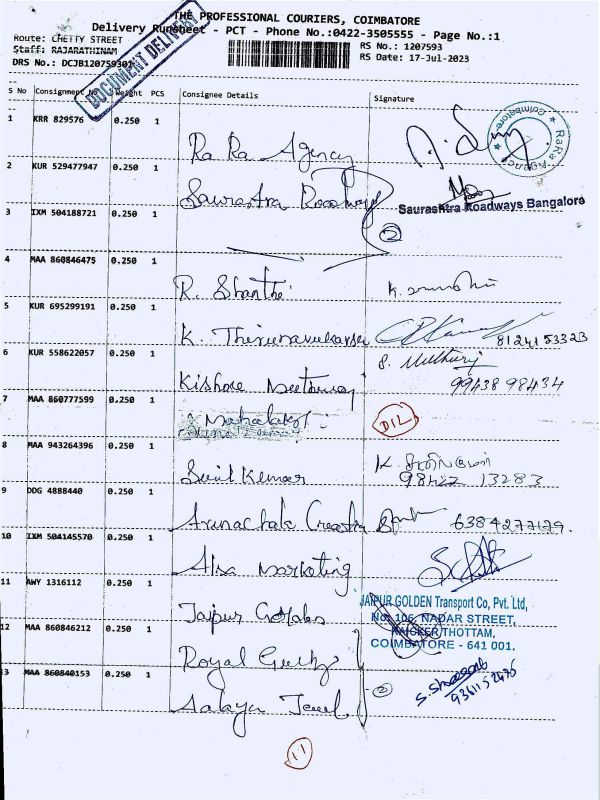 THE PROFESSIONAL COURIERS, COIMBATORE
Delivery Runsheet - PCT - Phone No.:0422-3505555 - Page No.:1
Route: CHETTY STREET
RS No.: 1207593
Staff: RAJARATHINAM
RS Date: 17-Jul-2023
DRS No.: DCJB120759301
DOCUMENT DELIVERY
S No Consignment No Weight PCS Consignee Details Signature
1 KRR 829576 0.250 1 Ra Ra Agency
RaRa Agency Coimbatore
2 KUR 529477947 0.250 1 Saurastra Roadways
Saurashtra Roadways Bangalore
3 IXM 504188721 0.250 1
2
4 MAA 860846475 0.250 1 R. Shanthi
5 KUR 695299191 0.250 1 K. Thirunavukarsu 8124153323
6 KUR 558622057 0.250 1 Kishore
9943898434
7 MAA 860777599 0.250 1 Mahalaxmi DIL
8 MAA 943264396 0.250 1 Sunil Kumar
98422 13283
9 DDG 4888440 0.250 1 Arunachala Creation 6384277179.
10 IXM 504145570 0.250 1 Alsa Marketing
11 AWY 1316112 0.250 1 Jaipur Golden
JAIPUR GOLDEN Transport Co, Pvt. Ltd,
No: 106, NADAR STREET,
NAICKER THOTTAM,
COIMBATORE - 641 001.
12 MAA 860846212 0.250 1 Royal
13 MAA 860840153 0.250 1 Aalaya Jewel
2
11